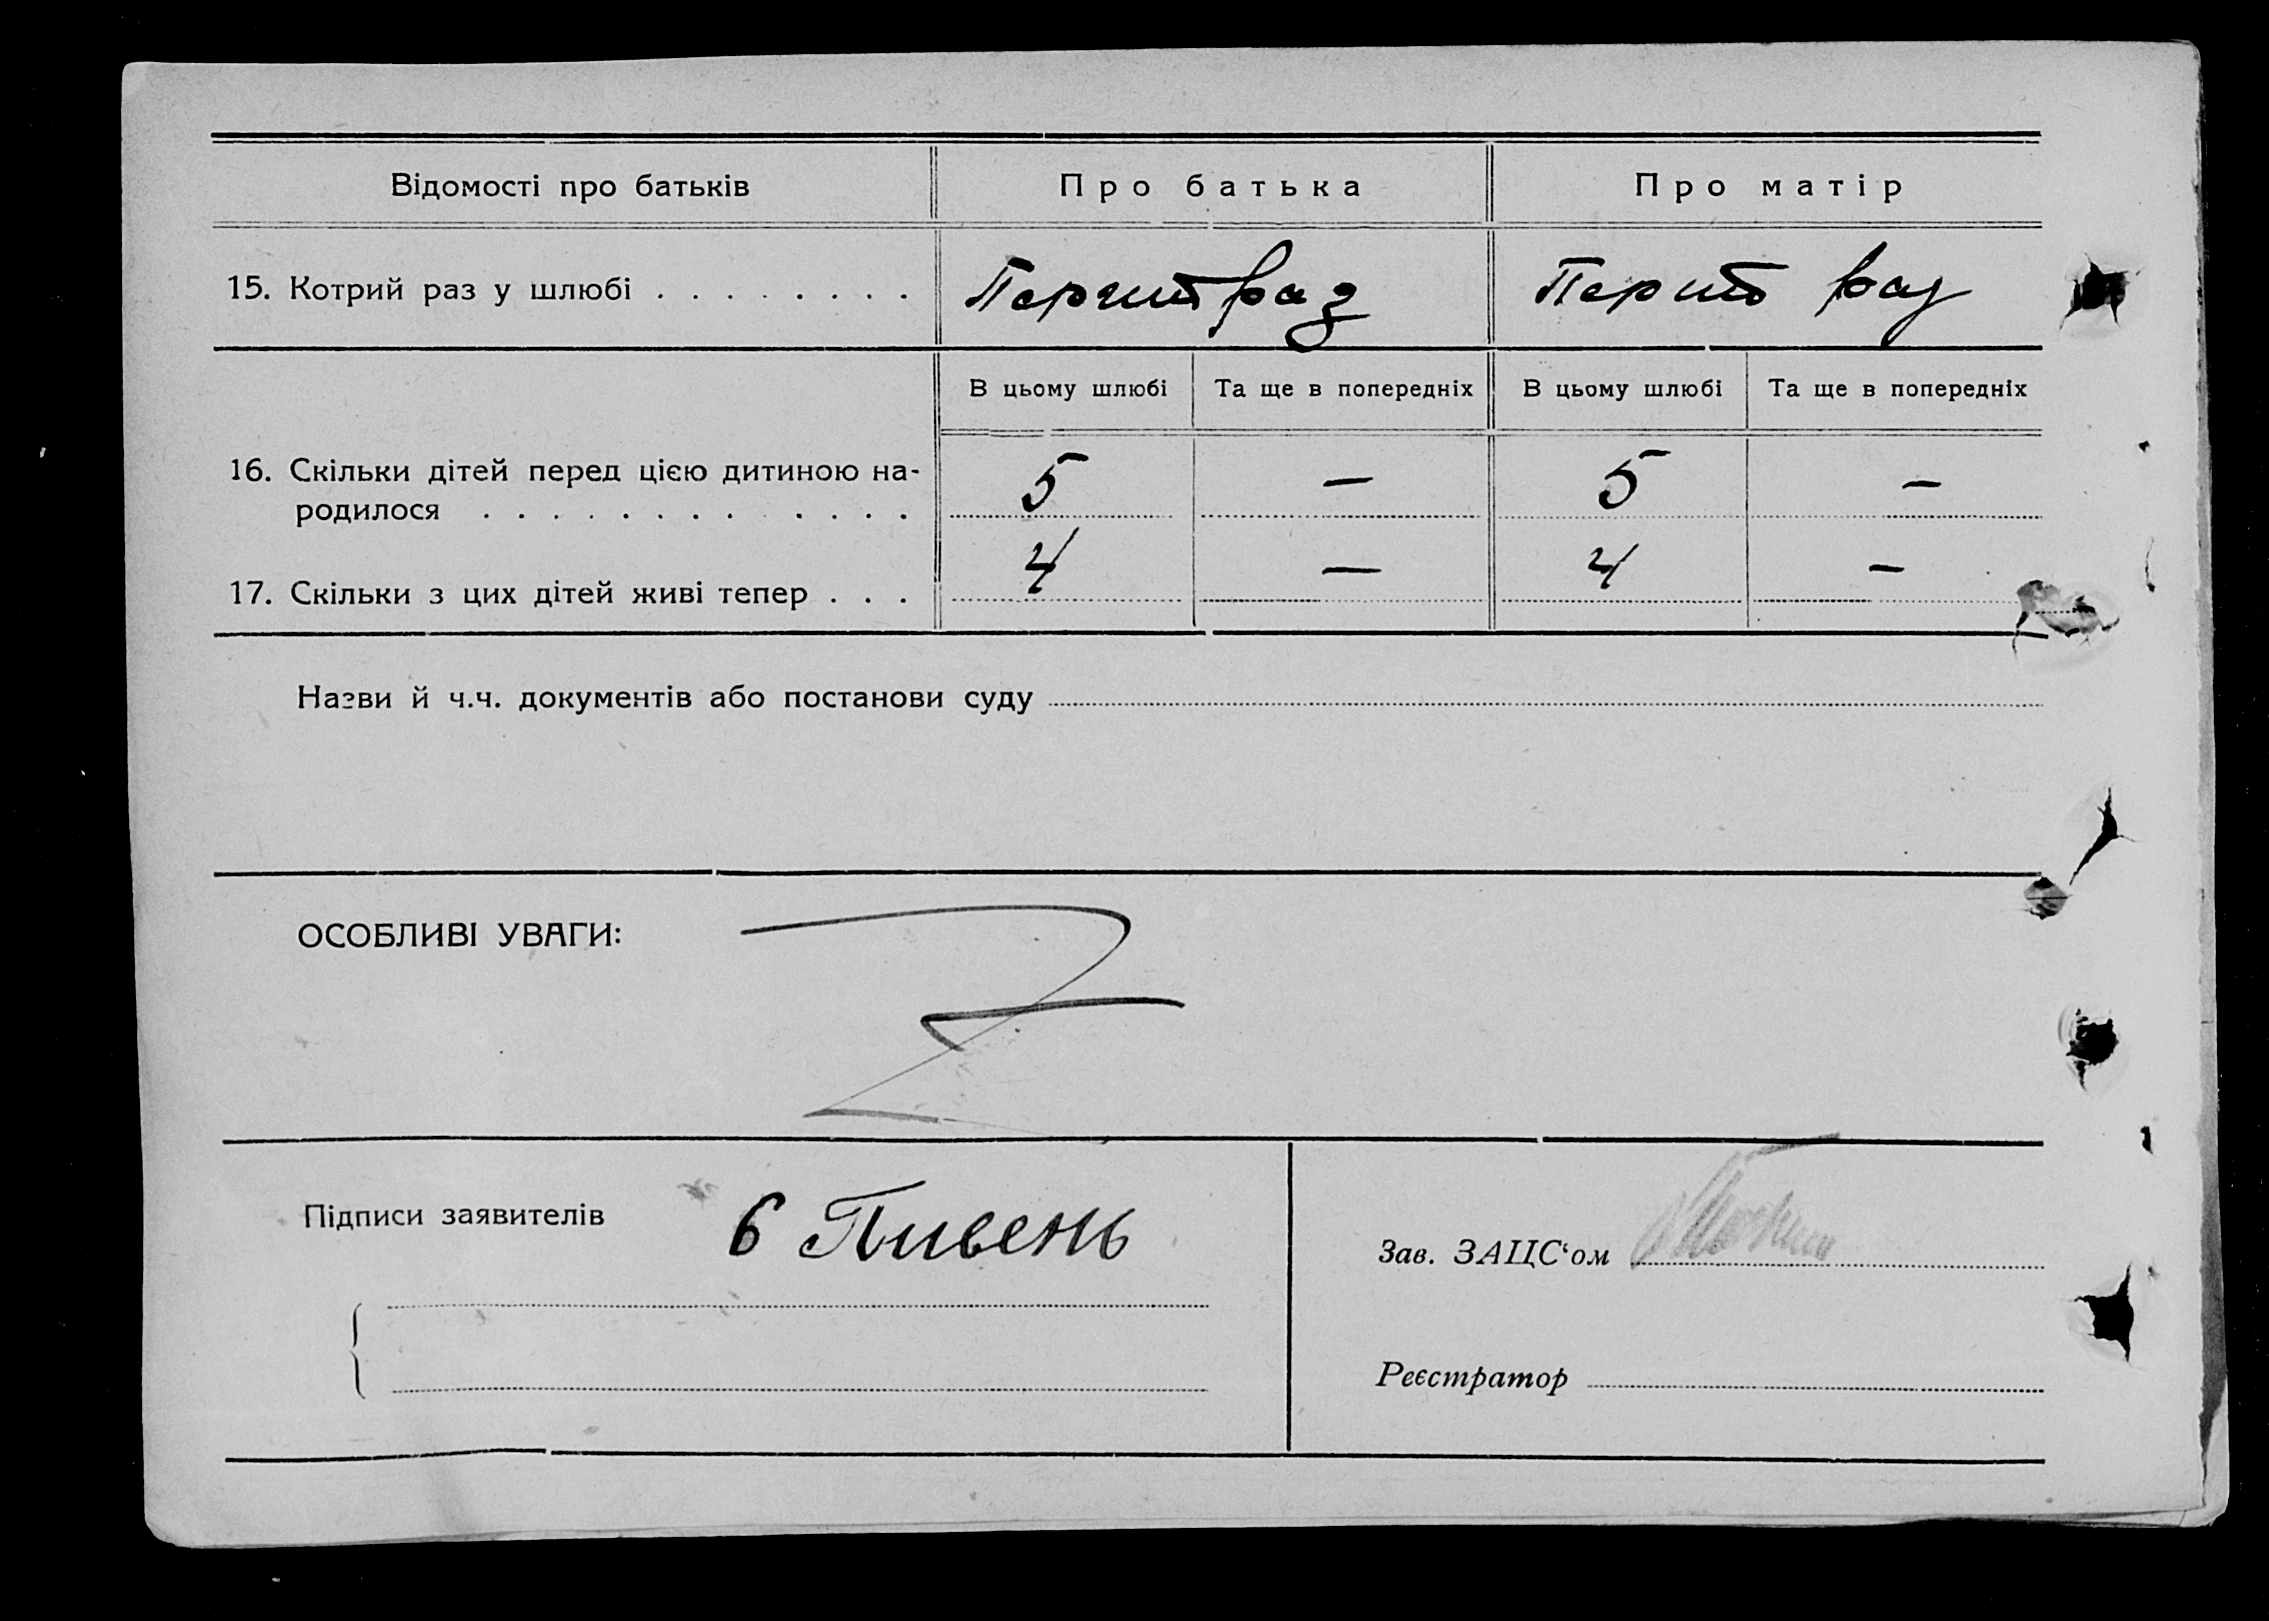 Відомості про батьків Про батька Про матір
15. Котрий раз у шлюбі . . . . . . . . Перший раз Перший раз
В цьому шлюбі Та ще в попередніх В цьому шлюбі Та ще в попередніх
16. Скільки дітей перед цією дитиною на-
родилося . . . . . . . . . . . . . 5 — 5 —
17. Скільки з цих дітей живі тепер . . . 4 — 4 —
Назви й ч.ч. документів або постанови суду
ОСОБЛИВІ УВАГИ:
Підписи заявителів б Пивень
Зав. ЗАЦС‘ом
Реєстратор